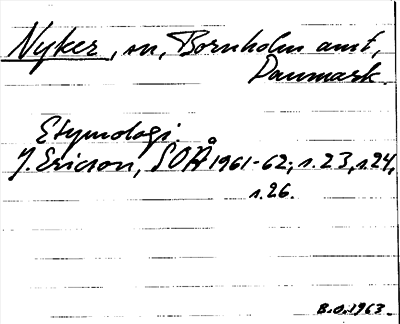 Nyker, sn, Bornholm amt,
Danmark.
Etymologi.
J. Ericson, SOÅ 1961-62; s. 23, s. 24,
s. 26.
B.O. 1963.